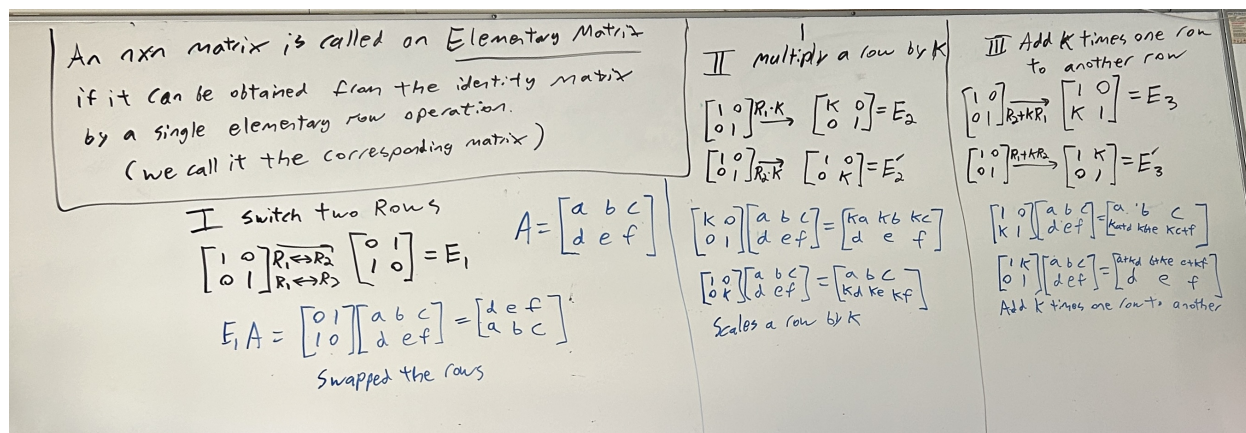 An nxn matrix is called an Elementary Matrix
if it can be obtained from the identity matrix
by a single elementary row operation.
(we call it the corresponding matrix)
I Switch two Rows
[1 0; 0 1] R₁↔R₂ R₁↔R₃ → [0 1; 1 0] = E₁
A = [a b c; d e f]
E₁A = [0 1; 1 0][a b c; d e f] = [d e f; a b c]
Swapped the rows
II multiply a row by K
[1 0; 0 1] R₁·K → [K 0; 0 1] = E₂
[1 0; 0 1] → R₂·K [1 0; 0 K] = E₂′
[K 0; 0 1][a b c; d e f] = [Ka Kb Kc; d e f]
[1 0; 0 K][a b c; d e f] = [a b c; Kd Ke Kf]
Scales a row by K
III Add K times one row
to another row
[1 0; 0 1] → R₂+KR₁ [1 0; K 1] = E₃
[1 0; 0 1] R₁+KR₂ → [1 K; 0 1] = E₃′
[1 0; K 1][a b c; d e f] = [a b c; Ka+d Kb+e Kc+f]
[1 K; 0 1][a b c; d e f] = [a+Kd b+Ke c+Kf; d e f]
Add K times one row to another